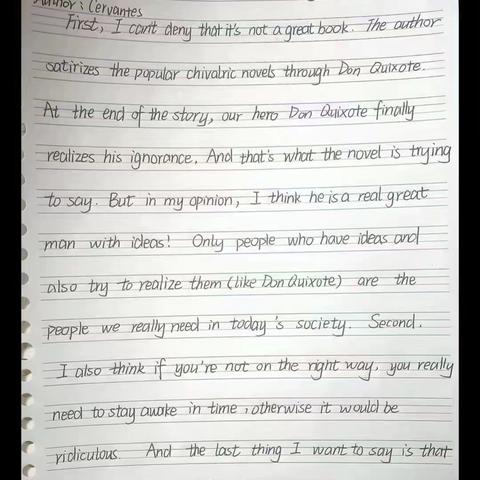 Author: Cervantes
First, I can't deny that it's not a great book. The author
satirizes the popular chivalric novels through Don Quixote.
At the end of the story, our hero Don Quixote finally
realizes his ignorance. And that's what the novel is trying
to say. But in my opinion, I think he is a real great
man with ideas! Only people who have ideas and
also try to realize them (like Don Quixote) are the
people we really need in today's society. Second.
I also think if you're not on the right way, you really
need to stay awake in time, otherwise it would be
ridiculous. And the last thing I want to say is that